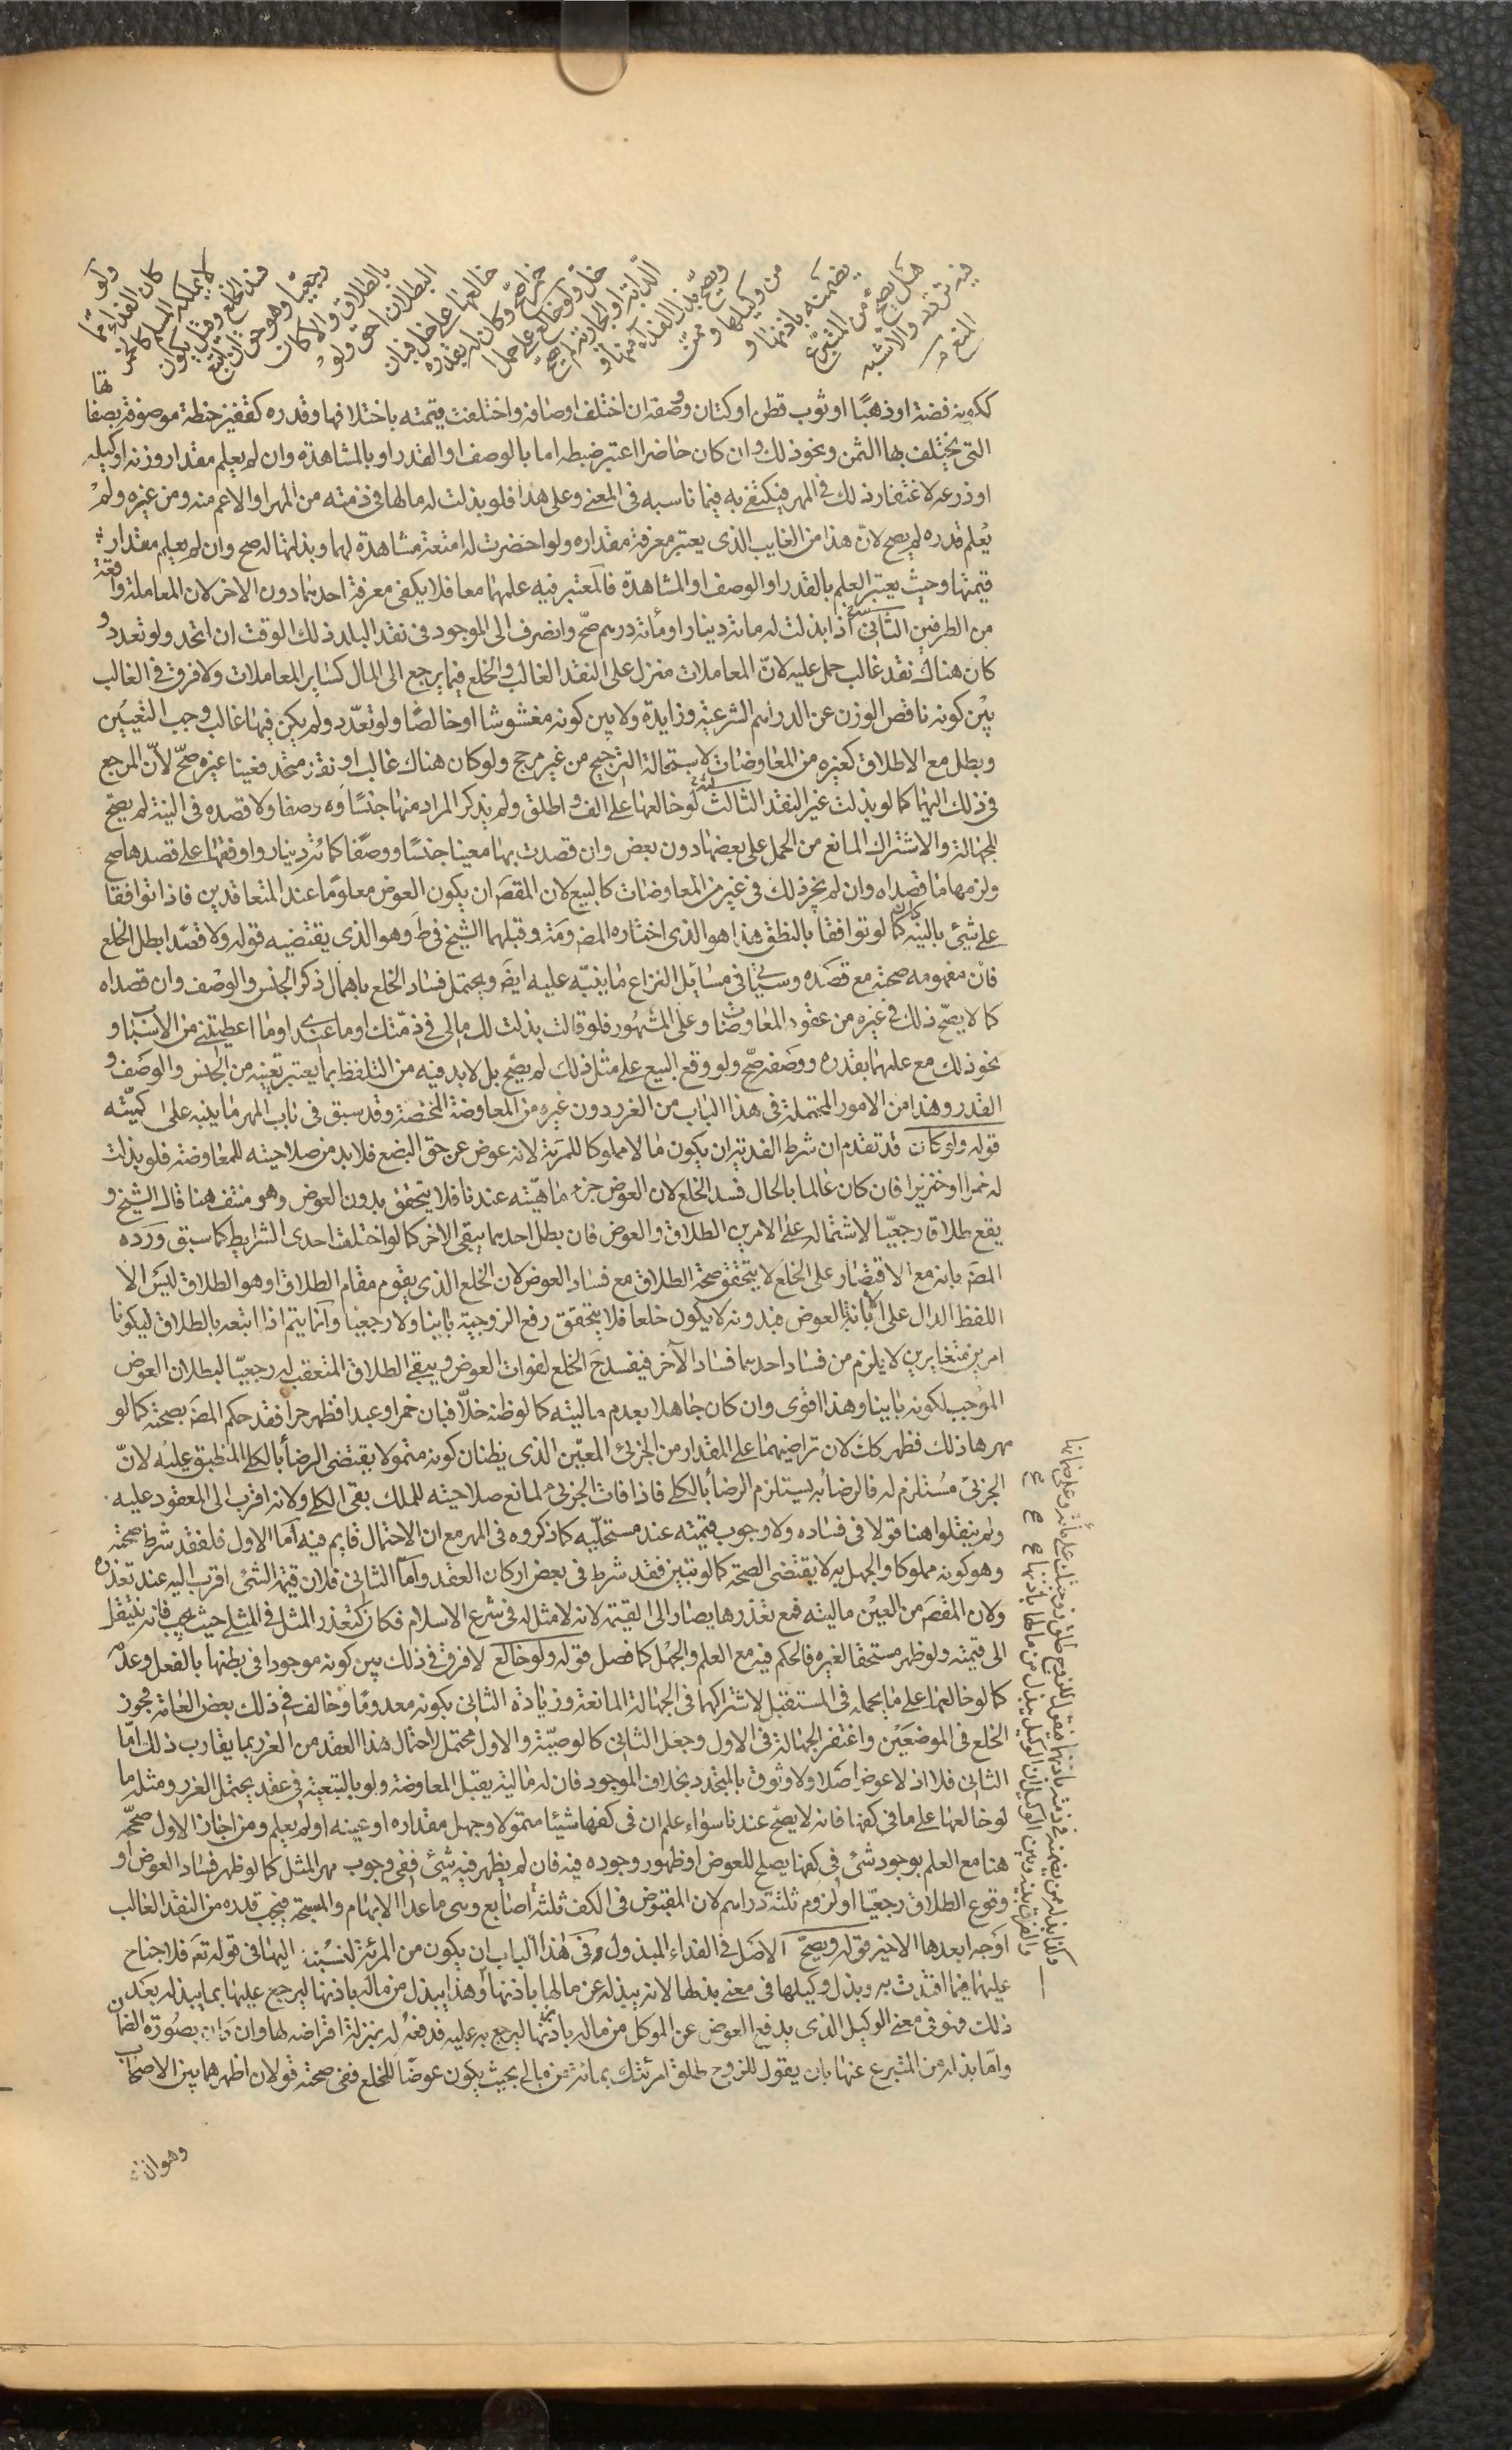 ولو
كان الفداء مما
لا يملكه المسلم كالخمر
فسد الخلع وقيل يكون
رجعيا وهو حق ان اتبع
بالطلاق والا كان
البطلان احق ولو
خالعها على خل فبان
خمرا صح وكان له بقدره
خل ولو خالع على حمل
الدابة او الجارية لم يصح
ويصح بذل الفداء منها و
من وكيلها وممن
يضمنه باذنها و
هل يصح من المتبرع
فيه تردد والاشبه
المنع
ككونه فضة او ذهبا او ثوب قطن او كتان ووصفه ان اختلف اوصافه واختلفت قيمته باختلافها وقدره كقفيز حنطة موصوفة بصفاتها
التى يختلف بها الثمن ونحو ذلك وان كان حاضرا اعتبر ضبطه اما بالوصف او القدر او بالمشاهدة وان لم يعلم مقدار وزنه او كيله
او ذرعه لاغتفار ذلك فى المهر فيكتفى به فيما ناسبه فى المعنى وعلى هذا فلو بذلت له مالها فى ذمته من المهر او الاعم منه ومن غيره ولم
يعلم قدره لم يصح لان هذا من الغايب الذى يعتبر معرفة مقداره ولو احضرت له امتعة مشاهدة لهما وبذلتها له صح وان لم يعلم مقدار
قيمتها وحيث يعتبر العلم بالقدر او الوصف او المشاهدة فالمعتبر فيه علمهما معا فلا يكفى معرفة احدهما دون الاخر لان المعاملة واقعة
من الطرفين الثانى اذا بذلت له مائة دينار او مائة درهم صح وانصرف الى الموجود فى نقد البلد ذلك الوقت ان اتحد ولو تعدد و
كان هناك نقد غالب حمل عليه لان المعاملات منزل على النقد الغالب والخلع فيما يرجع الى المال كساير المعاملات ولا فرق فى الغالب
بين كونه ناقص الوزن عن الدراهم الشرعية وزايده ولا بين كونه مغشوشا او خالصا ولو تعدد ولم يكن فيها غالب وجب التعيين
وبطل مع الاطلاق كغيره من المعاوضات لاستحالة الترجيح من غير مرجح ولو كان هناك غالب او نقد متحد فعينا غيره صح لان المرجع
فى ذلك اليهما كما لو بذلت غير النقد الثالث لو خالعها على الف واطلق ولم يذكر المراد منها جنسا و وصفا ولا قصده فى النية لم يصح
للجهالة والاشتراك المانع من الحمل على بعضها دون بعض وان قصدت بها معينا جنسا ووصفا كمائة دينار ووافقها على قصدها صح
ولزمها ما قصداه وان لم يجز ذلك فى غيره من المعاوضات كالبيع لان المقصَ ان يكون العوض معلوما عند المتعاقدين فاذا توافقا
على شيئ بالنية كان كما لو توافقا بالنطق هذا هو الذى اختاره المصَ ومَة وقبلهما الشيخ فى طَ وهو الذى يقتضيه قوله ولا قصدا بطل الخلع
فان مفهومه صحته مع قصده وسيأتى فى مسايل النزاع ما ينبه عليه ايضَ ويحتمل فساد الخلع باهمال ذكر الجنس والوصف وان قصداه
كما لا يصح ذلك فى غيره من عقود المعاوضات وعلى المشهور فلو قالت بذلت لك مالى فى ذمتك او ما عندى او ما اعطيتنى من الاسباب او
نحو ذلك مع علمهما بقدره ووصفه صح ولو وقع البيع على مثل ذلك لم يصح بل لا بد فيه من التلفظ بما يعتبر تعيينه من الجنس والوصف و
القدر وهذا من الامور المحتملة فى هذا الباب من الغرر دون غيره من المعاوضة المحضة وقد سبق فى باب المهر ما ينبه على كميته
قوله ولو كان قد تقدم ان شرط الفدية ان يكون مالا مملوكا للمرئة لانه عوض عن حق البضع فلا بد من صلاحيته للمعاوضة فلو بذلت
له خمرا او خنزيرا فان كان عالما بالحال فسد الخلع لان العوض جزء ماهيته عندنا فلا يتحقق بدون العوض وهو منتف هنا قال الشيخ و
يقع طلاقا رجعيا لاشتماله على الامرين الطلاق والعوض فان بطل احدهما يبقى الاخر كما لو اختلت احدى الشرايط كما سبق ورده
المصَ بانه مع الاقتصار على الخلع لا يتحقق صحة الطلاق مع فساد العوض لان الخلع الذى يقوم مقام الطلاق او هو الطلاق ليس الا
اللفظ الدال على الابانة بالعوض فبدونه لا يكون خلعا فلا يتحقق رفع الزوجية باينا ولا رجعيا وانما يتم اذا اتبعه بالطلاق ليكونا
امرين متغايرين لا يلزم من فساد احدهما فساد الآخر فيفسد حَ الخلع لفوات العوض ويبقى الطلاق المتعقب له رجعيا لبطلان العوض
الموجب لكونه باينا وهذا اقوى وان كان جاهلا بعدم ماليته كما لو ظنه خلا فبان خمرا او عبدا فظهر حرا فقد حكم المصَ بصحته كما لو
مهرها ذلك فظهر كك لان تراضيهما على المقدار من الجزئى المعين الذى يظنان كونه متمولا يقتضى الرضا بالكلى المنطبق عليه لان
الجزئى مستلزم له فالرضا به يستلزم الرضا بالكلى فاذا فات الجزئى لمانع صلاحيته للملك بقى الكلى ولانه اقرب الى المعقود عليه
ولم ينقلوا هنا قولا فى فساده ولا وجوب قيمته عند مستحليه كما ذكروه فى المهر مع ان الاحتمال قايم فيه اما الاول فلفقد شرط صحته
وهو كونه مملوكا والجهل به لا يقتضى الصحة كما لو تبين فقد شرط فى بعض اركان العقد واما الثانى فلان قيمة الشئ اقرب اليه عند تعذره
ولان المقصَ من العين ماليته فمع تعذرها يصار الى القيمة لانه لا مثل له فى شرع الاسلام فكان كتعذر المثل فى المثلى حيث يجب فانه ينتقل
الى قيمته ولو ظهر مستحقا لغيره فالحكم فيه مع العلم والجهل كما فصل قوله ولو خالع لا فرق فى ذلك بين كونه موجودا فى بطنها بالفعل وعدمه
كما لو خالعها على ما يحمله فى المستقبل لاشتراكهما فى الجهالة المانعة وزيادة الثانى بكونه معدوما وخالف فى ذلك بعض العامة فجوز
الخلع فى الموضعين واغتفر الجهالة فى الاول وجعل الثانى كالوصية والاول محتمل لاحتمال هذا العقد من الغرر بما يقارب ذلك اما
الثانى فلا اذ لا عوض اصلا ولا وثوق بالمتجدد بخلاف الموجود فان له مالية يقبل المعاوضة ولو بالتبعية فى عقد يحتمل الغرر ومثله ما
لو خالعها على ما فى كفها فانه لا يصح عندنا سواء علم ان فى كفها شيئا متمولا وجهل مقداره او عينه او لم يعلم ومن اجاز الاول صححه
هنا مع العلم بوجود شئ فى كفها يصلح للعوض او ظهور وجوده فيه فان لم يظهر فيه شيئ ففى وجوب مهر المثل كما لو ظهر فساد العوض او
وقوع الطلاق رجعيا او لزوم ثلثة دراهم لان المقبوض فى الكف ثلثة اصابع وهى ما عدا الابهام والمسبحة فيجب قدره من النقد الغالب
اوجه ابعدها الاخير قوله ويصح الاصل فى الفداء المبذول فى هذا الباب ان يكون من المرئة لنسبته اليها فى قوله تعَ فلا جناح
عليهما فيما افتدت به وبذل وكيلها فى معنى بذلها لانه يبذله عن مالها باذنها وهذا يبذل من ماله باذنها ليرجع عليها بما يبذله بعد
ذلك فهو فى معنى الوكيل الذى يدفع العوض عن الموكل من ماله باذنها ليرجع به عليه فدفعه له بمنزلة اقراضه لها وان كان بصورة الضمان
واما بذله من المتبرع عنها بان يقول للزوج طلق امرئتك بمائة من مالى بحيث يكون عوضا للخلع ففى صحته قولان اظهرهما بين الاصحاب
وهو ان